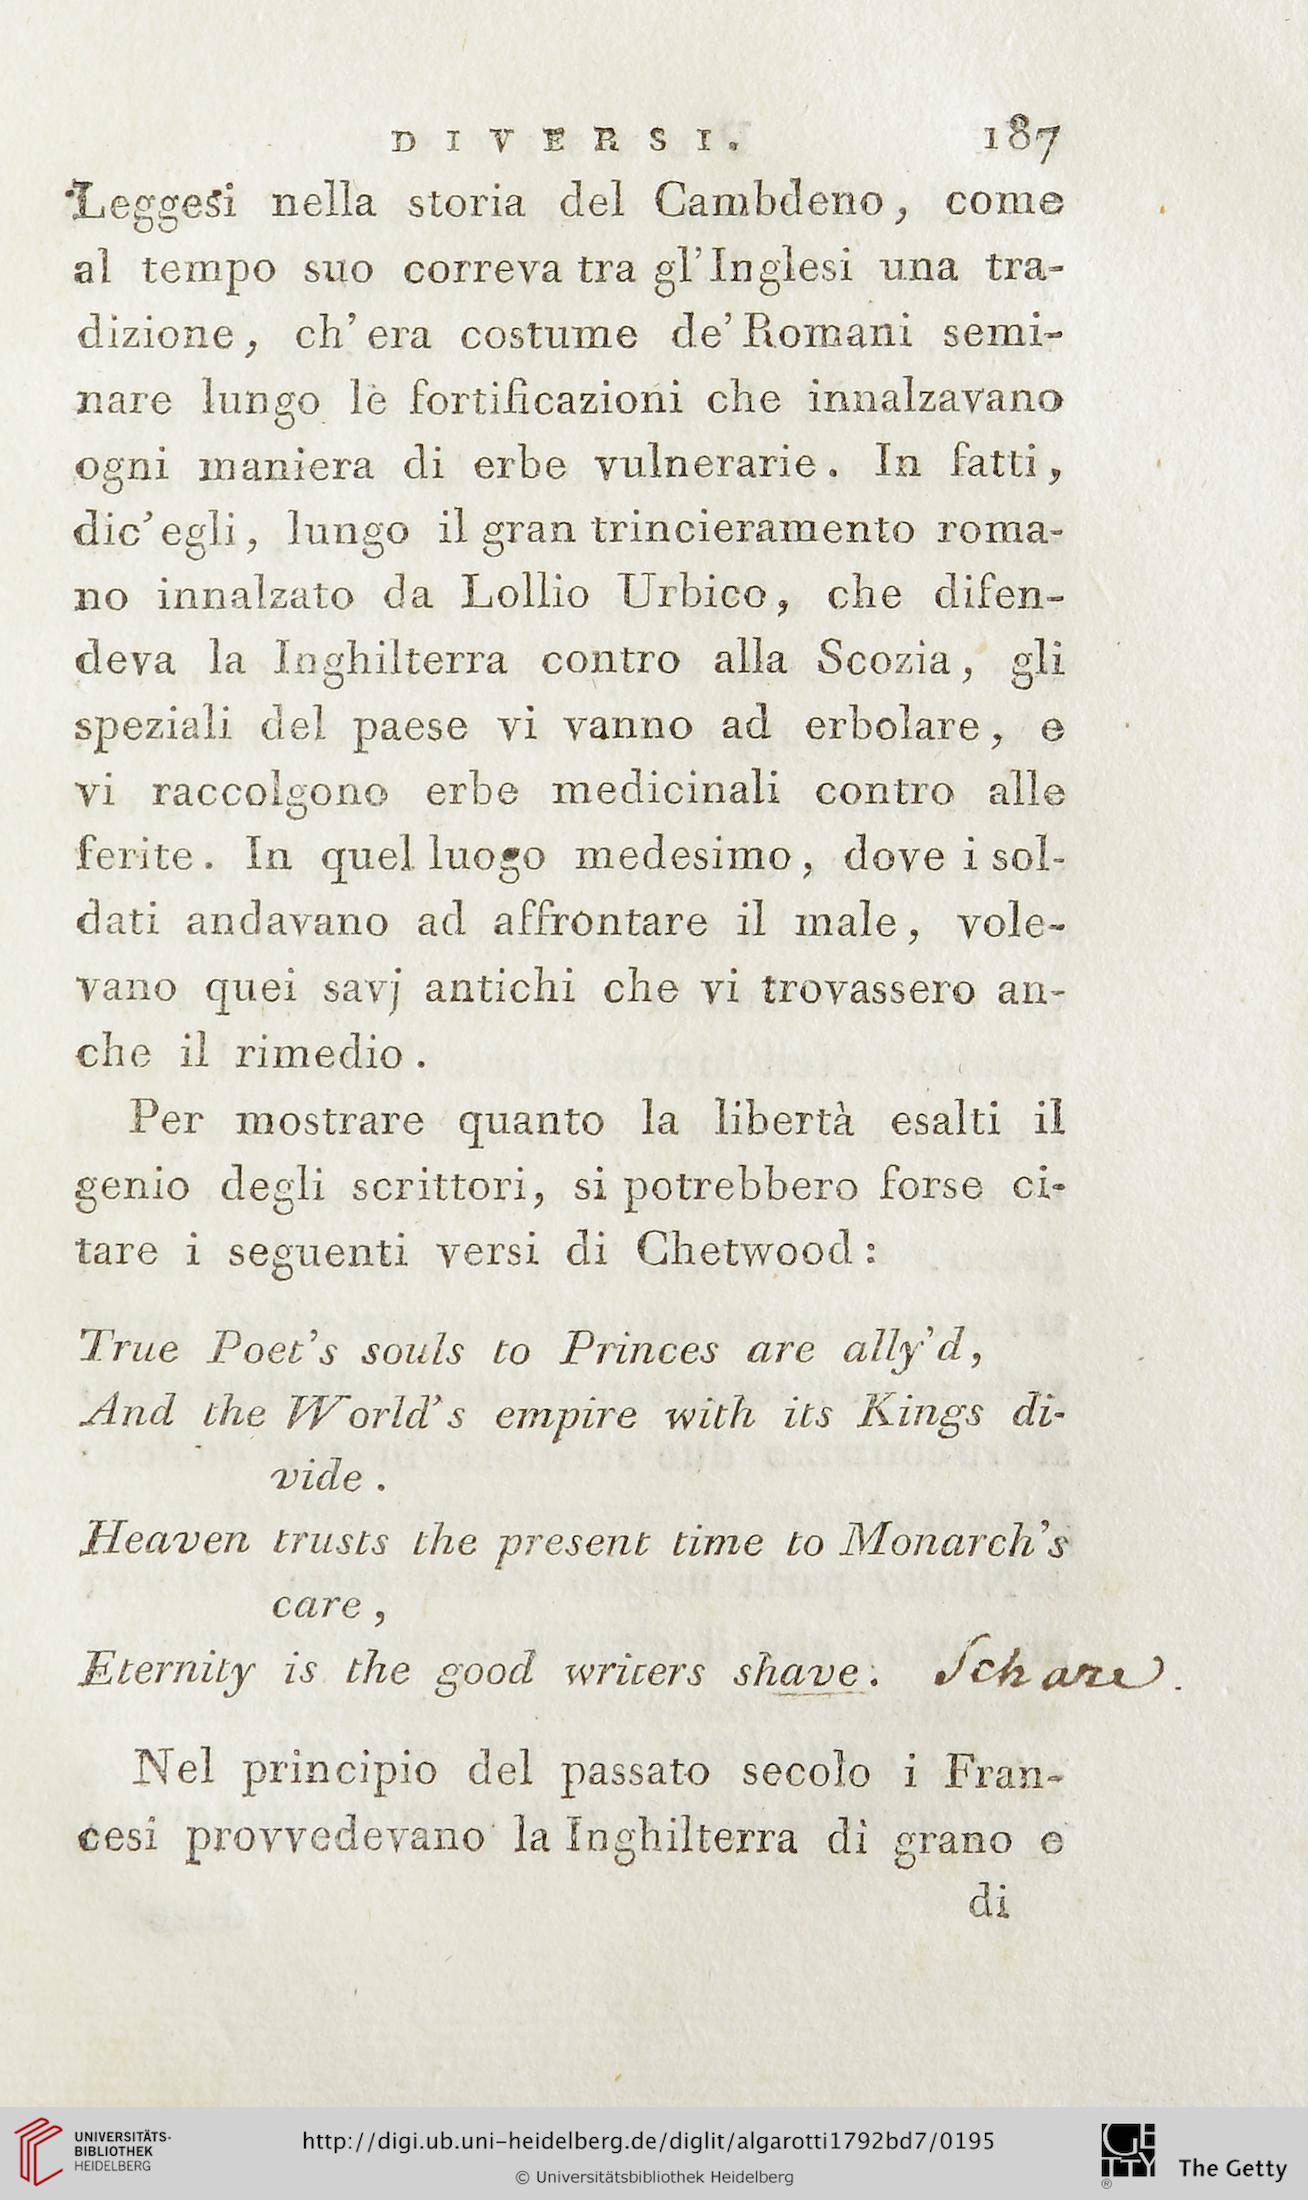 DIVERSI. 187
Leggesi nella storia del Cambdeno, come
al tempo suo correva tra gl'Inglesi una tra-
dizione, ch'era costume de'Romani semi-
nare lungo le fortificazioni che innalzavano
ogni maniera di erbe vulnerarie. In fatti,
dic'egli, lungo il gran trincieramento roma-
no innalzato da Lollio Urbico, che difen-
deva la Inghilterra contro alla Scozia, gli
speziali del paese vi vanno ad erbolare, e
vi raccolgono erbe medicinali contro alle
ferite. In quel luogo medesimo, dove i sol-
dati andavano ad affrontare il male, vole-
vano quei savj antichi che vi trovassero an-
che il rimedio.
Per mostrare quanto la libertà esalti il
genio degli scrittori, si potrebbero forse ci-
tare i seguenti versi di Chetwood:
True Poet's souls to Princes are ally'd,
And the World's empire with its Kings di-
vide.
Heaven trusts the present time to Monarch's
care,
Eternity is the good writers shave.
Nel principio del passato secolo i Fran-
cesi provvedevano la Inghilterra di grano e
di
UNIVERSITÄTS-
BIBLIOTHEK
HEIDELBERG
http://digi.ub.uni-heidelberg.de/diglit/algarotti1792bd7/0195
© Universitätsbibliothek Heidelberg
GETTY
The Getty